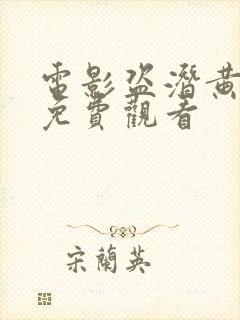 電影盜潛黃
免費觀看
宋蘭英